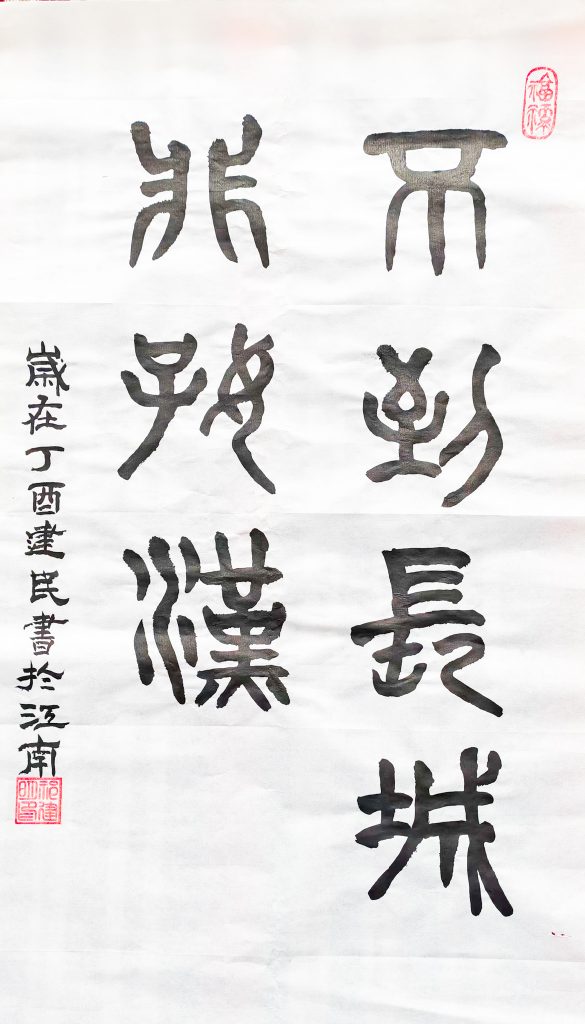 福祿
不到長城
非好漢
歲在丁酉建民書於江南